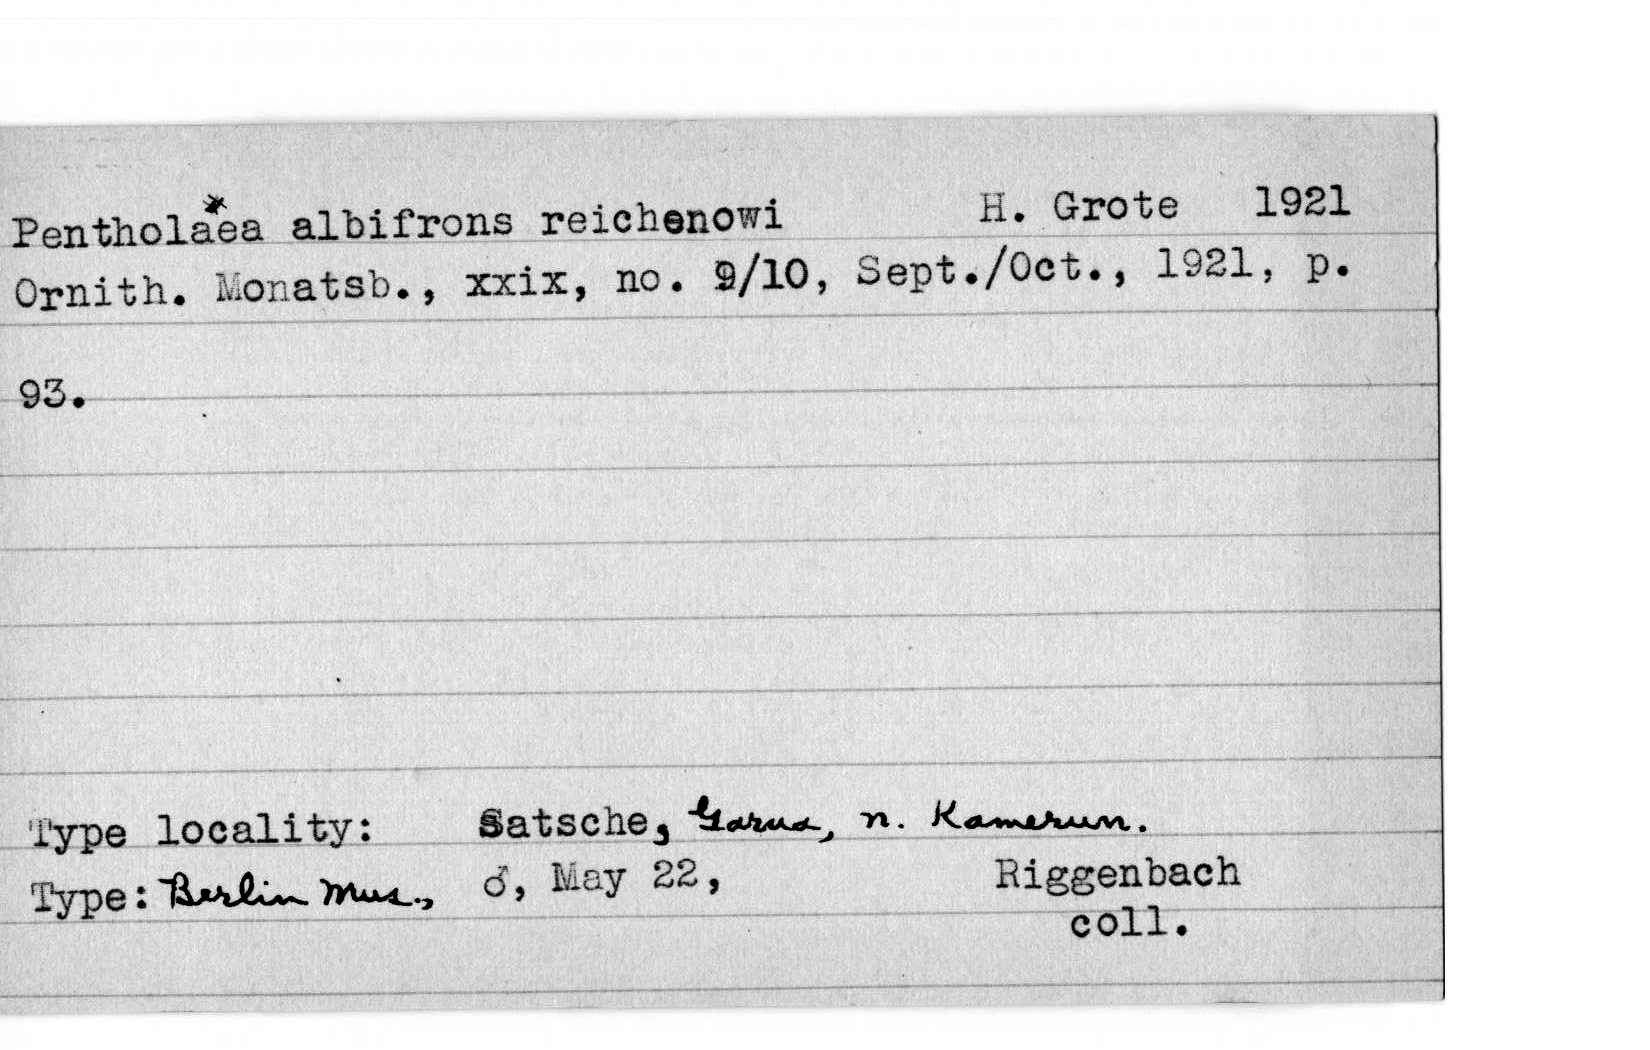 Pentholaea albifrons reichenowi H. Grote 1921
Ornith. Monatsb., xxix, no. 9/10, Sept./Oct., 1921, p.
93.
Type locality: Satsche, Garua, n. Kamerun.
Type: Berlin Mus., ♂, May 22, Riggenbach
coll.